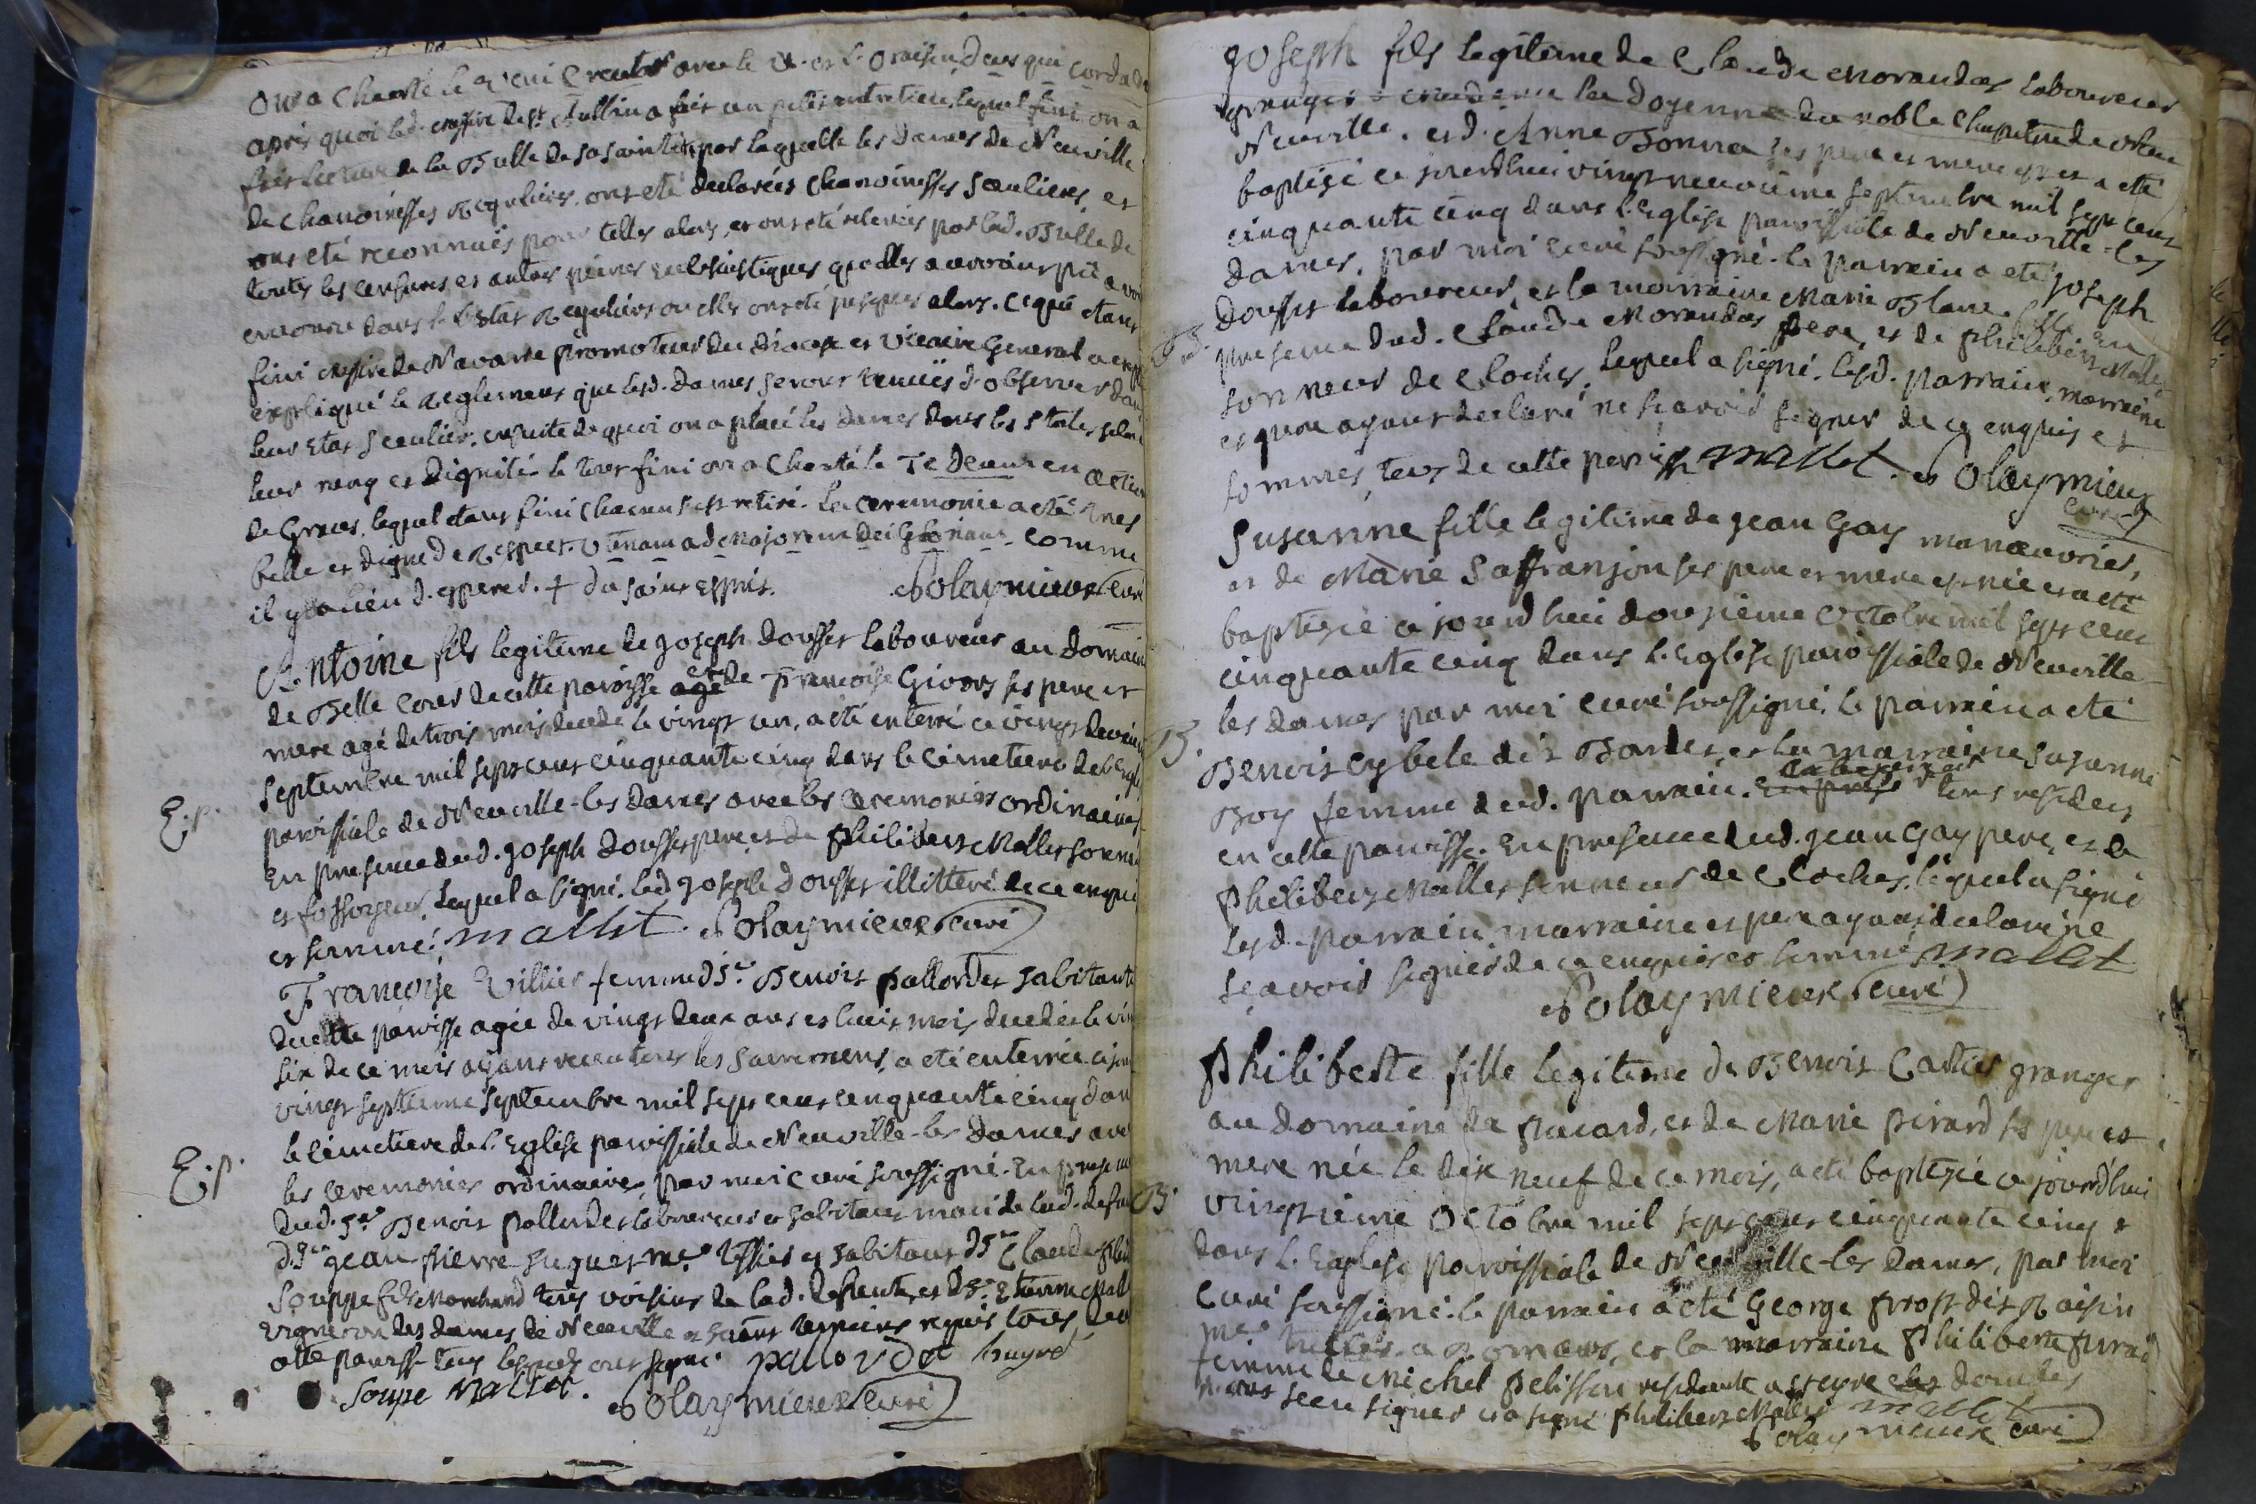 on a chanté le Veni Creator avec le V. et l'Oraison, Deus qui corda
après quoi led. messire de St. Aubin a fait un petit entretien, lequel fini on a
fait lecture de la Bulle de sa sainteté, par laquelle les Dames de Neuville
de chanoinesses Regulieres, ont eté declarées chanoinesses seculieres, et
ont eté reconnues pour telles alors, et ont eté relevées par lad. Bulle de
toutes les censures et autres peines ecclesiastiques quelles auroient pû avoir
encourue dans l'Estat Regulier ou elles ont eté jusques alors. ce qui etant
fini messire de Navarre promoteur du diocese et vicaire General a
expliqué le Reglement que lesd. Dames seront tenuës d'observer dans
leur Etat seculier. ensuite de quoi on a placé les Dames dans les stales selon
leur rang et dignité. le tout fini on a chanté le Te Deum en action
de Graces, lequel etant fini chacun s'est retiré. La ceremonie a eté tres
belle et digne de Respect. Utinam ad Majorem Dei Gloriam. comme
il y a lieu d'esperer. + du saint Esprit. Polaymieux curé
Antoine fils legitime de Joseph Dousset laboureur au domaine
de Belle cour de cette paroisse et de Francoise Givors ses pere et
mere agé de trois mois decedé le vingt un, a eté enterré ce vingt deuxieme
septembre mil sept cent cinquante cinq dans le cimetiere de l'Eglise
E.p.
paroissiale de Neuville-les Dames avec les ceremonies ordinaires
En presence dud. Joseph Dousset pere, et de Philibert Mallet sonneur
et fossoyeur, Lequel a signé. led Joseph Dousset illitteré de ce enquis
et sommé. mallet. Polaymieux curé
Francoise Villier femme d sr Benoit Pallordet habitante
de cette paroisse agée de vingt deux ans et huit mois decedée le vingt
six de ce mois ayant receu tous les sacremens, a eté enterrée ce jourd
vingt septieme septembre mil sept cent cinquante cinq dans
le cimetiere de l'Eglise paroissiale de Neuville-les Dames avec
E.p.
les ceremonies ordinaires, par moi curé soussigné. En presence
dud. sr. Benoit Pallordet laboureur et habitant mari de lad. defunte
d. sr jean pierre huguet me. Tissier et habitant d sr Claude
Souppe fils Marchand tous voisins de lad. defunte, et de sr. Etienne Mallet
vigneron des dames de Neuville et habitant temoins requis tous de
cette paroisse tous lesquels ont signé pallordet huguet
Soupe Mallet. Polaymieux curé
Joseph fils legitime de Claude Morandat laboureur
granger a Madame la Doyenne du noble Chapitre de Neu
Neuville. et d'Anne Bonna ses pere et mere est et a eté
baptisé ce jourdhui vingt neuvieme septembre mil sept cent
cinquante cinq dans l'Eglise paroissiale de Neuville-les
Dames, par moi curé soussigné. le parrain a eté Joseph
B.
Dousset laboureur, et la marraine Marie Blanc. En
presence dud. Claude Morandat pere, et de Philibert Mallet
sonneur de cloches, lequel a signé. lesd. parrain, marraine
et pere ayant declaré ne sçavoir signer de ce enquis et
sommés, tous de cette paroisse mallet. Polaymieux
curé
Susanne fille legitime de jean Gay manœuvrier,
et de Marie Saffranjon ses pere et mere est née et a eté
baptisée ce jourdhui douzieme Octobre mil sept cent
cinquante cinq dans l'Eglise paroissiale de Neuville-
les dames par moi curé soussigné. le parrain a eté
B.
Benoit Cybele dit Bardet, et la marraine Susanne
Boy femme dud. parrain. tous residens
en cette paroisse. En presence dud. jean Gay pere, et de
Philibert Mallet sonneur de cloches, lequel a signé
lesd. parrain, marraine et pere ayant declaré ne
sçavoir signer de ce enquis et sommé mallet
Polaymieux curé
Philiberte fille legitime de Benoit Cartier granger
au domaine de Placard, et de Marie Pirard ses pere et
mere née le dix neuf de ce mois, a eté baptisée ce jourdhui
B.
vingtieme Octobre mil sept cent cinquante cinq
dans l'Eglise paroissiale de Neuville-les Dames, par moi
curé soussigné. le parrain a eté George Prost dit Raisin
me. a Romans, et la marraine Philiberte Pirard
femme de Michel Pelisson residente a
sceu signer et a signé Philibert Mallet mallet
Polaymieux curé